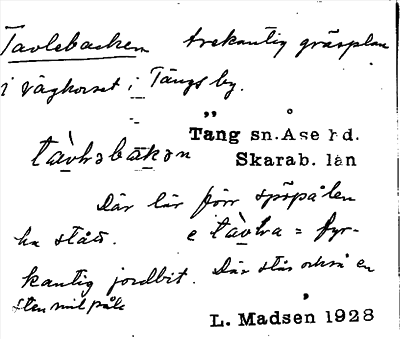 Tavlebacken trekantig gräsplan
i vägkorset i Tängs by.
Täng sn. Åse hd.
tàvhəbàkən Skarab. län
Där lär förr spöpålen
ha stått. e tàvha = fyr-
kantig jordbit. Där står också en
sten milpåle
L. Madsen 1928